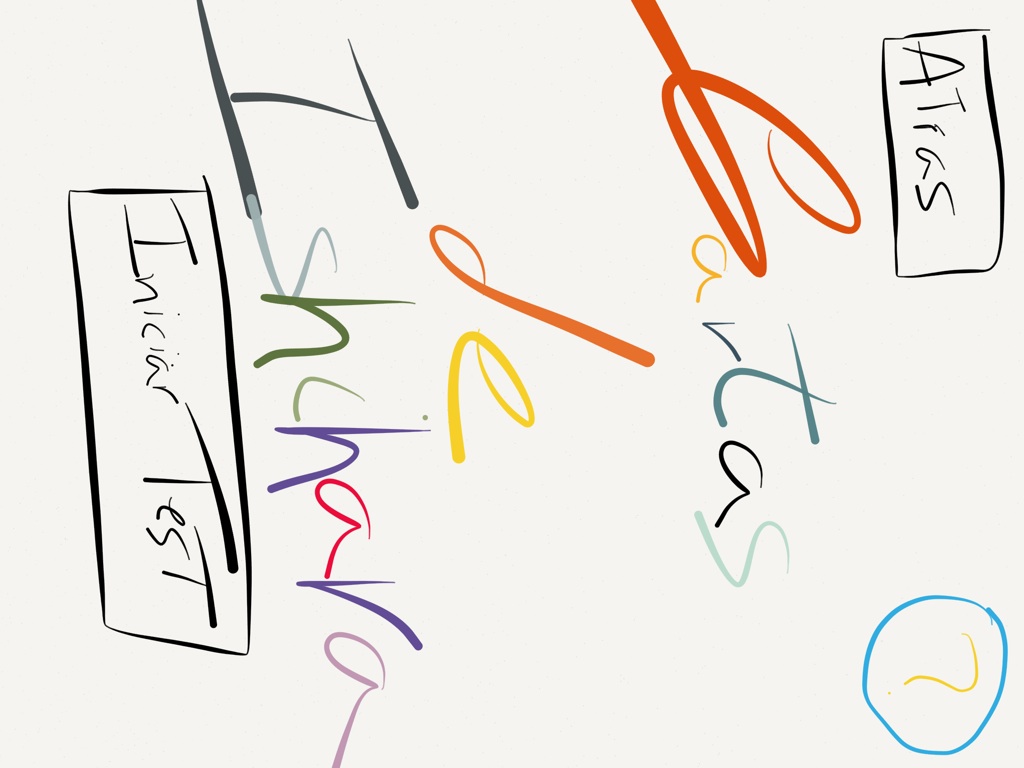 ATras
?
Cartas
de
Ishihara
Iniciar TesT